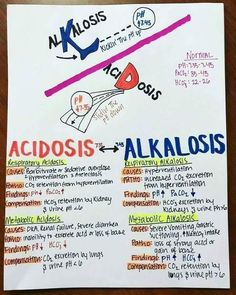 ALKALOSIS
Kickin' the pH up
pH
>7.45
NORMAL
pH = 7.35-7.45
PaCO₂ = 35-45
HCO₃ = 22-26
ACIDOSIS
pH
<7.35
ACIDOSIS ALKALOSIS
Respiratory Acidosis
Causes: Barbiturate or Sedative overdose
Hypoventilation & Atelectasis
Patho: CO₂ retention from hypoventilation
Findings: pH↓ PaCO₂↑
Compensation: HCO₃ retention by kidney
& Urine pH <6
Respiratory Alkalosis
Causes: Hyperventilation
Patho: increased CO₂ excretion
from hyperventilation
Findings: pH↑ PaCO₂↓
Compensation: HCO₃ excretion by
Kidneys & Urine pH >6
Metabolic Acidosis
Causes: DKA, Renal Failure, Severe diarrhea
Patho: inability to excrete acid or loss of base
Findings: pH↓ HCO₃↓
Compensation: CO₂ excretion by lungs
& urine pH <6
Metabolic Alkalosis
Causes: Severe Vomiting, Gastric
Suctioning,
Patho: loss of strong acid or
gain of base
Findings: pH↑ HCO₃↑
Compensation: CO₂ retention by
lungs & urine pH >6